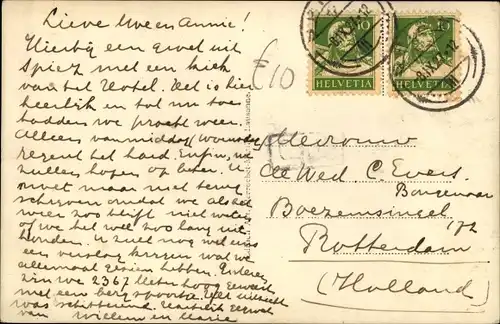 Lieve Mies en Annie!
Hierbij een groet uit
Spiez met een kiek
van het Hotel. Het is hier
heerlijk en tot nu toe
hadden we pracht weer.
Alleen vanmiddag
regent het hard. Enfin, we
zullen hopen op beter. U
moet maar niet terug
schrijven omdat we als het
weer zoo blijft niet weten
of we het wel zoo lang uit
houden. U zult nog wel eens
een verslag krijgen wat we
allemaal gezien hebben. Gisteren
zijn we 2367 Meter hoog geweest
met een berg spoortje. Het uitzicht
was schitterend. Hartelijk gegroet
van Willem en Marie
£10
10
10
HELVETIA
HELVETIA
Mevrouw
de Wed. C. Evers.
Boezemsingel 172
Rotterdam
(Holland)